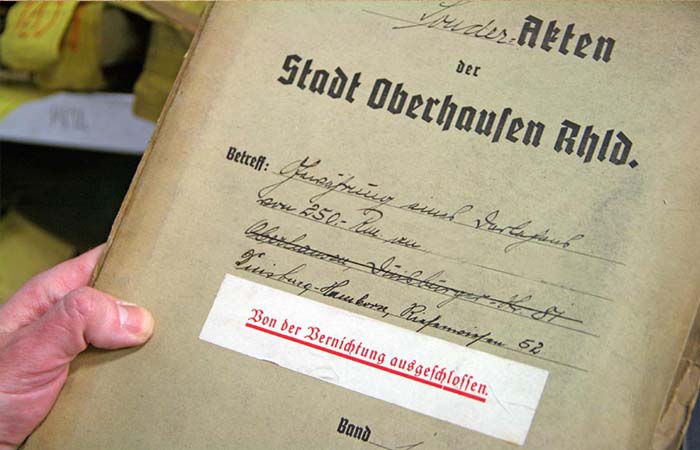 Sonder-Akten
der
Stadt Oberhausen Rhld.
Betreff: Gewährung eines Darlehens
von 250.- Rm an
Oberhausen, Duisburger-Str. 81
Duisburg-Hamborn, 52
Von der Vernichtung ausgeschlossen.
Band